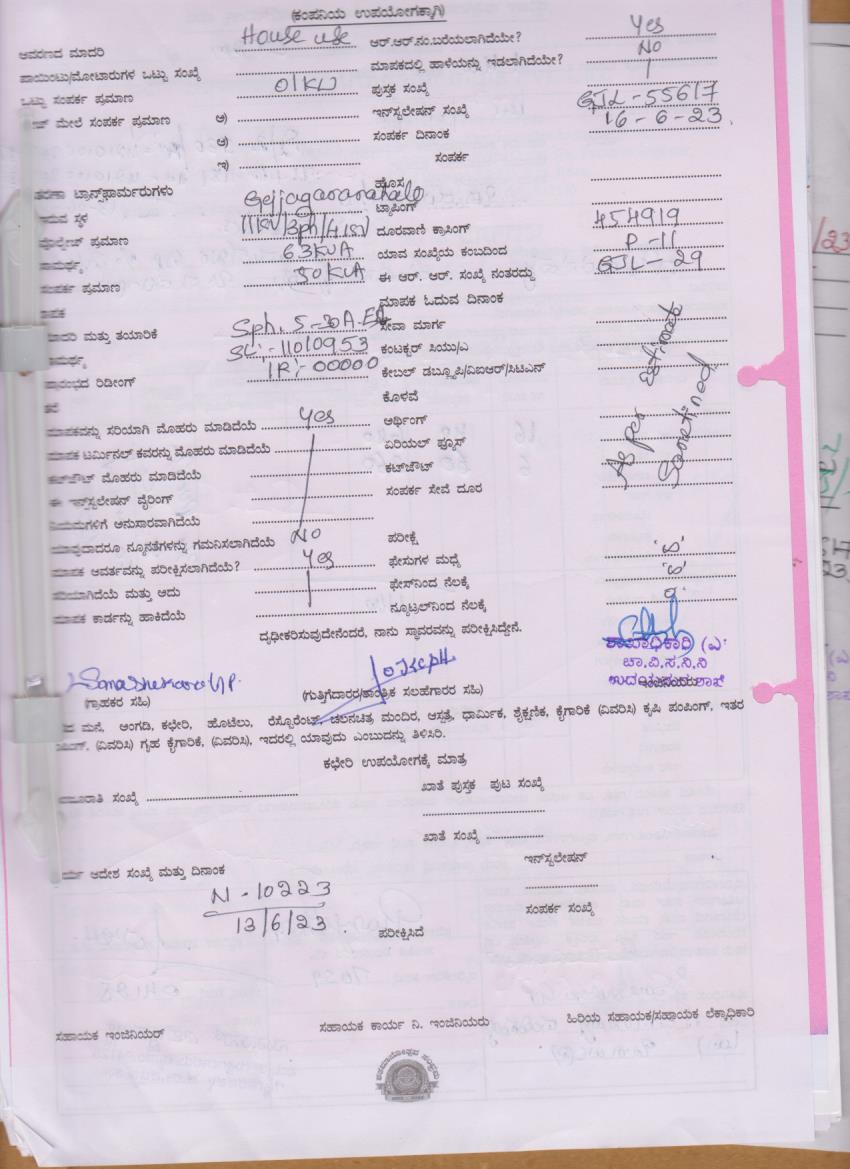 (ಕಂಪನಿಯ ಉಪಯೋಗಕ್ಕಾಗಿ)
ಆವರಣದ ಮಾದರಿ House use ಆರ್.ಆರ್.ನಂ.ಬರೆಯಲಾಗಿದೆಯೇ? Yes
ಪಾಯಿಂಟು/ಮೋಟಾರುಗಳ ಒಟ್ಟು ಸಂಖ್ಯೆ ಮಾಪಕದಲ್ಲಿ ಹಾಳೆಯನ್ನು ಇಡಲಾಗಿದೆಯೇ? No
ಒಟ್ಟು ಸಂಪರ್ಕ ಪ್ರಮಾಣ 01KW ಪುಸ್ತಕ ಸಂಖ್ಯೆ
ಮೇಲೆ ಸಂಪರ್ಕ ಪ್ರಮಾಣ ಅ) ಇನ್‌ಸ್ಟಲೇಷನ್ ಸಂಖ್ಯೆ GJL-55617
ಆ) ಸಂಪರ್ಕ ದಿನಾಂಕ 16-6-23.
ಇ) ಸಂಪರ್ಕ
ತರಣಾ ಟ್ರಾನ್ಸ್‌ಫಾರ್ಮರುಗಳು ಹೊಸ
ಇರುವ ಸ್ಥಳ Gejjagaranahalli ಟ್ಯಾಪಿಂಗ್
ವೋಲ್ಟೇಜ್ ಪ್ರಮಾಣ 11KV/3ph/415V ದೂರವಾಣಿ ಕ್ರಾಸಿಂಗ್ 454919
ಸಾಮರ್ಥ್ಯ 63KVA ಯಾವ ಸಂಖ್ಯೆಯ ಕಂಬದಿಂದ P-11
ಸಂಪರ್ಕ ಪ್ರಮಾಣ 50KVA ಈ ಆರ್. ಆರ್. ಸಂಖ್ಯೆ ನಂತರದ್ದು GJL-29
ಮಾಪಕ ಮಾಪಕ ಓದುವ ದಿನಾಂಕ
ಮಾದರಿ ಮತ್ತು ತಯಾರಿಕೆ Sph. 5-30A. ಸೇವಾ ಮಾರ್ಗ
ಸಾಮರ್ಥ್ಯ SL:-11010953 ಕಂಟಕ್ಟರ್ ಸಿಯು/ಎ
ಪ್ರಾರಂಭದ ರಿಡೀಂಗ್ IR:-00000 ಕೇಬಲ್ ಡಬ್ಲ್ಯೂಪಿ/ವಿಐಆರ್/ಸಿಟಿಎನ್
ಕೊಳವೆ
ಮಾಪಕವನ್ನು ಸರಿಯಾಗಿ ಮೊಹರು ಮಾಡಿದೆಯೆ Yes ಅರ್ಥಿಂಗ್
ಮಾಪಕ ಟರ್ಮಿನಲ್ ಕವರನ್ನು ಮೊಹರು ಮಾಡಿದೆಯೆ ಏರಿಯಲ್ ಫ್ಯೂಸ್
ಕಟ್‌ಜೌಟ್ ಮೊಹರು ಮಾಡಿದೆಯೆ ಕಟ್‌ಜೌಟ್
ಈ ಇನ್‌ಸ್ಟಲೇಷನ್ ವೈರಿಂಗ್ ಸಂಪರ್ಕ ಸೇವೆ ದೂರ
As per Estimate Sanctined
ನಿಯಮಗಳಿಗೆ ಅನುಸಾರವಾಗಿದೆಯೆ
ಯಾವುದಾದರೂ ನ್ಯೂನತೆಗಳನ್ನು ಗಮನಿಸಲಾಗಿದೆಯೆ No ಪರೀಕ್ಷೆ
ಮಾಪಕ ಆವರ್ತವನ್ನು ಪರೀಕ್ಷಿಸಲಾಗಿದೆಯೆ? Yes ಫೇಸುಗಳ ಮಧ್ಯೆ
ಸರಿಯಾಗಿದೆಯೆ ಮತ್ತು ಅದು ಫೇಸ್‌ನಿಂದ ನೆಲಕ್ಕೆ
ಮಾಪಕ ಕಾರ್ಡನ್ನು ಹಾಕಿದೆಯೆ ನ್ಯೂಟ್ರಲ್‌ನಿಂದ ನೆಲಕ್ಕೆ
ದೃಢೀಕರಿಸುವುದೇನೆಂದರೆ, ನಾನು ಸ್ಥಾವರವನ್ನು ಪರೀಕ್ಷಿಸಿದ್ದೇನೆ.
ಶಾಖಾಧಿಕಾರಿ (ವಿ
ಚಾ.ವಿ.ಸ.ನಿ.ನಿ
ಇಂಜಿನಿಯರು
(ಗ್ರಾಹಕರ ಸಹಿ) (ಗುತ್ತಿಗೆದಾರರ/ತಾಂತ್ರಿಕ ಸಲಹೆಗಾರರ ಸಹಿ)
ಮನೆ, ಅಂಗಡಿ, ಕಛೇರಿ, ಹೊಟೆಲು, ರೆಸ್ಟೊರೆಂಟ್, ಚಲನಚಿತ್ರ ಮಂದಿರ, ಆಸ್ಪತ್ರೆ, ಧಾರ್ಮಿಕ, ಶೈಕ್ಷಣಿಕ, ಕೈಗಾರಿಕೆ (ವಿವರಿಸಿ) ಕೃಷಿ ಪಂಪಿಂಗ್, ಇತರ
ಪಂಪಿಂಗ್, (ವಿವರಿಸಿ) ಗೃಹ ಕೈಗಾರಿಕೆ, (ವಿವರಿಸಿ), ಇದರಲ್ಲಿ ಯಾವುದು ಎಂಬುದನ್ನು ತಿಳಿಸಿರಿ.
ಕಛೇರಿ ಉಪಯೋಗಕ್ಕೆ ಮಾತ್ರ
ಸಂಖ್ಯೆ ಖಾತೆ ಪುಸ್ತಕ ಪುಟ ಸಂಖ್ಯೆ
ಖಾತೆ ಸಂಖ್ಯೆ
ಆದೇಶ ಸಂಖ್ಯೆ ಮತ್ತು ದಿನಾಂಕ ಇನ್‌ಸ್ಟಲೇಷನ್
N-10223
13/6/23 ಸಂಪರ್ಕ ಸಂಖ್ಯೆ
ಪರೀಕ್ಷಿಸಿದೆ
ಸಹಾಯಕ ಇಂಜಿನಿಯರ್ ಸಹಾಯಕ ಕಾರ್ಯ ನಿ. ಇಂಜಿನಿಯರು ಹಿರಿಯ ಸಹಾಯಕ/ಸಹಾಯಕ ಲೆಕ್ಕಾಧಿಕಾರಿ